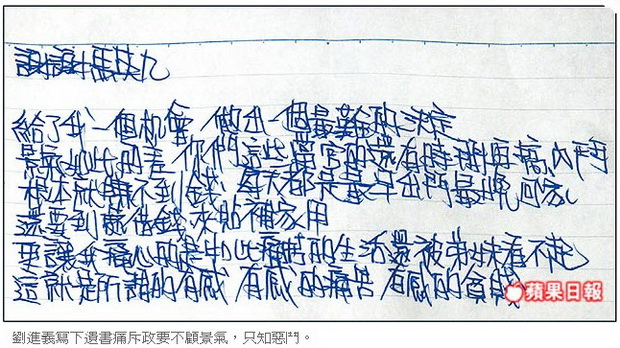 謝謝馬英九
給了我一個机會 做出一個最難的決定
景氣如此的差 你們這些當官的還有時間再搞內鬥
根本就賺不到錢 每天都是最早出門最晚回家
還要到處借錢來貼補家用
更讓我痛心的是如此 的生活還被弟妹看不起
這就是所謂的有感 有感的痛苦 有感的貧
蘋果日報
劉進義寫下遺書痛斥政要不顧景氣，只知惡鬥。